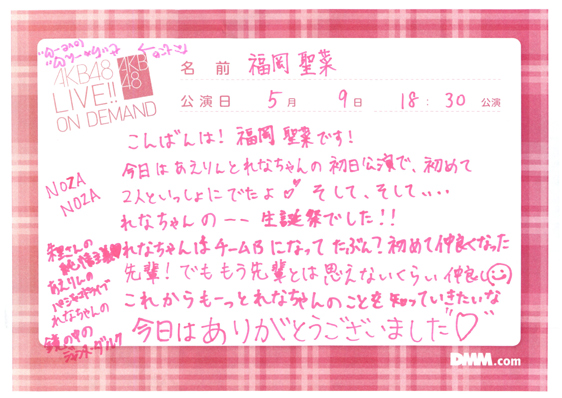 AKB48
LIVE!!
ON DEMAND
AKB
48
名前 福岡 聖菜
公演日 5月 9日 18:30 公演
こんばんは! 福岡 聖菜です!
今日はあえりんとれなちゃんの初日公演で、初めて
2人といっしょにでたよ♡ そして、そして、、、
れなちゃんの ーー 生誕祭でした!!
れなちゃんはチームBになって たぶん?初めて仲良くなった
先輩! でももう先輩とは思えないくらい仲良し
これからもーっとれなちゃんのことを知っていきたいな
今日はありがとうございました♡
NOZA
NOZA
あえりんの
パジャマドライブ
れなちゃんの
鏡の中の
ジャンヌ・ダルク
DMM.com